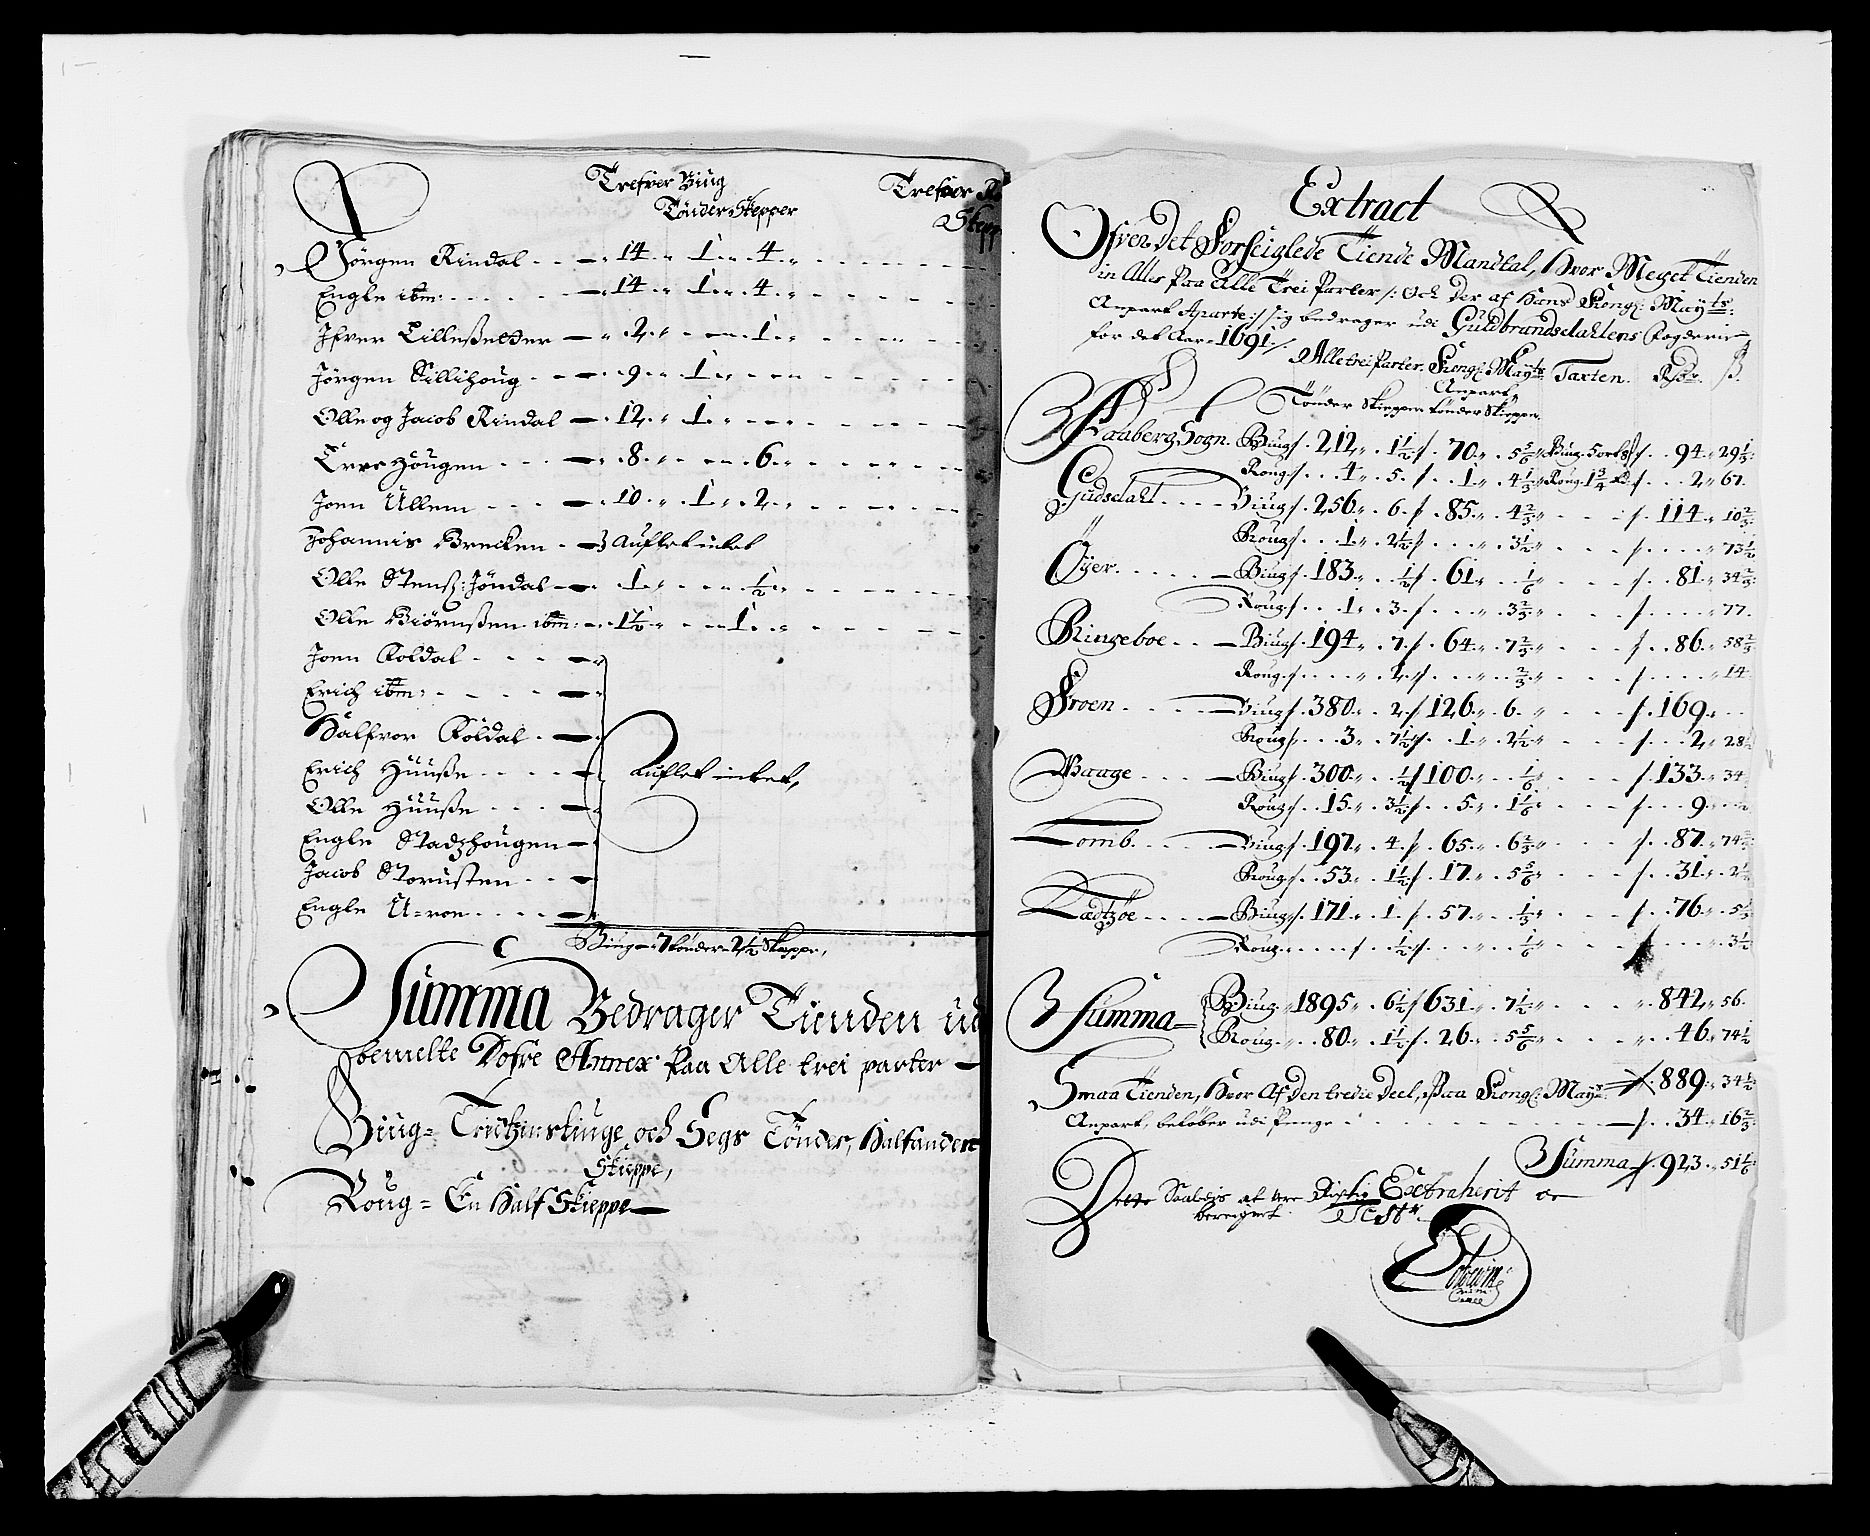 Trefver Biug
Tönder Skepper
Trefver
Skepp
Jörgen Rindal - 14 . 1 . 4
Engle ibm: - 14 . 1 . 4
Ifver Lilleßetter - 2 . 1
Jörgen Sillihoug - 9 . 1
Olle og Jacob Rindal - 12 . 1
Erre Hougen - 8 . 6
Joen Ullem - 10 . 1 . 2
Johannis Brecken - aufled intet
Olle Stenß: Jöndal - 1 . ½
Olle Biörnßen ibm: - 1½ . 1
Joen Koldal
Erich ibm:
Halfvor Koldal
Erich Huuße
Aufled intet,
Olle Huuße
Engle Stadzhougen
Jacob Storusten
Engle U=ron
Biug - 7 tönder - 2½ Skeppe,
Summa Bedrager Tienden ud
bemelte Dofre Annex Paa Alle trei parter
Biug = tiuge och Segs Tönder, halfanden
Skieppe,
Roug = En Half Skieppe
Extract
Ofver Det Forseiglede Tiende Mandtal, Hvor Meget Tienden
in Alles Paa Alle Trei Parter /: Och Der af Hans Kongl: Mayts:
Anpart Aparte :/ sig bedrager udi Guldbrandsdahlens Fogderie
for det Aar 1691 /
Alle trei Parter. Kongl: Mayts Taxten. Rdr. ß.
Anpart,
Tönder Skiepper tönder Skieppe,
Faaberg Sogn. Biug . 212 . 1½ . 70 . 5⅚ Biug 5 ort . 94 . 29⅓
Roug . 4 . 5 . 1 . 4⅓ Roug 1¾ Rd . 2 . 67
Gudsdahl Biug . 256 . 6 . 85 . 4⅔ . 114 . 10⅔
Roug . 1 . 2½ . 3½ . 73½
Öyer. Biug . 183 . ½ . 61 . ⅙ . 81 . 34⅔
Roug . 1 . 3 . 3⅔ . 77
Ringeboe Biug . 194 . 7 . 64 . 7⅔ . 86 . 58⅔
Roug . 2 . ⅔ . 14
Froen Biug . 380 . 2 . 126 . 6 . 169
Roug . 3 . 7½ . 1 . 2½ . 2 . 28½
Waage Biug . 300 . ½ . 100 . ⅙ . 133 . 34
Roug . 15 . 3½ . 5 . 1⅙ . 9
Lomb. Biug . 197 . 4 . 65 . 6⅔ . 87 . 74⅔
Roug . 53 . 1½ . 17 . 5⅚ . 31 . 2½
Ledtzöe Biug . 171 . 1 . 57 . ⅓ . 76 . 5⅓
Roug . ½ . ⅙ . 3½
Summa = Biug . 1895 . 6½ / 631 . 7½ . 842 . 56
Roug . 80 . 1½ . 26 . 5⅚ . 46 . 74½
889 . 34½
Smaa Tienden, Hvor Af Den tredie Deel, Paa Kongl: Mays:
Anpart, beløber udi Penge . 34 . 16⅔
Summa . 923 . 51⅙
Dette Saaledis at vere Rigtig Extraherit oc
beregnet Test: